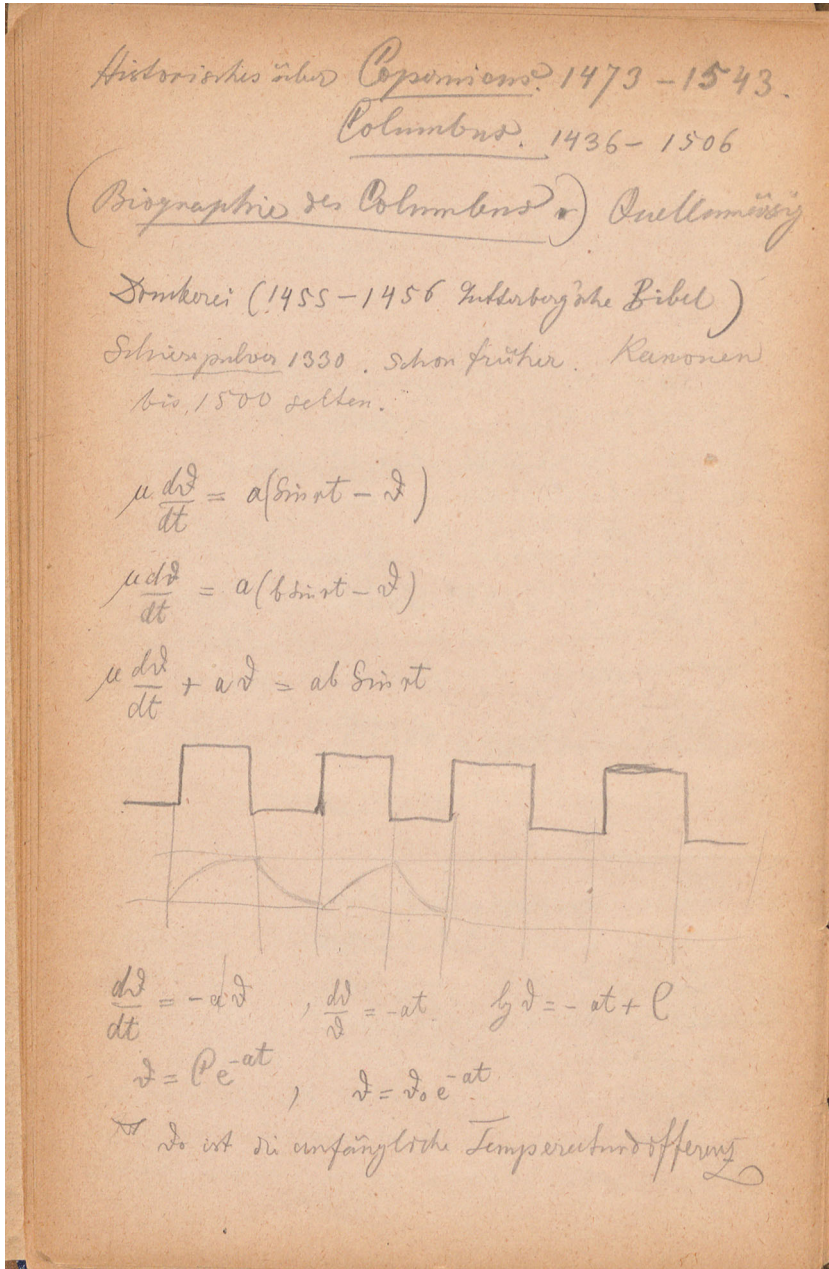 Historisches über Copernicus. 1473 – 1543.
Columbus. 1436 – 1506
(Biographie des Columbus.) Quellenmäsig
Druckerei (1455 – 1456 Guttenberg'sche Bibel)
Schiesspulver 1330. schon früher. Kanonen
bis 1500 selten.
μ dϑ/dt = a(sin rt – ϑ)
μ dϑ/dt = a(b sin rt – ϑ)
μ dϑ/dt + aϑ = ab sin rt
dϑ/dt = –aϑ , dϑ/ϑ = –at lg ϑ = –at + C
ϑ = Ce^{–at} , ϑ = ϑ₀e^{–at}.
ϑ₀ ist die anfängliche Temperaturdifferenz